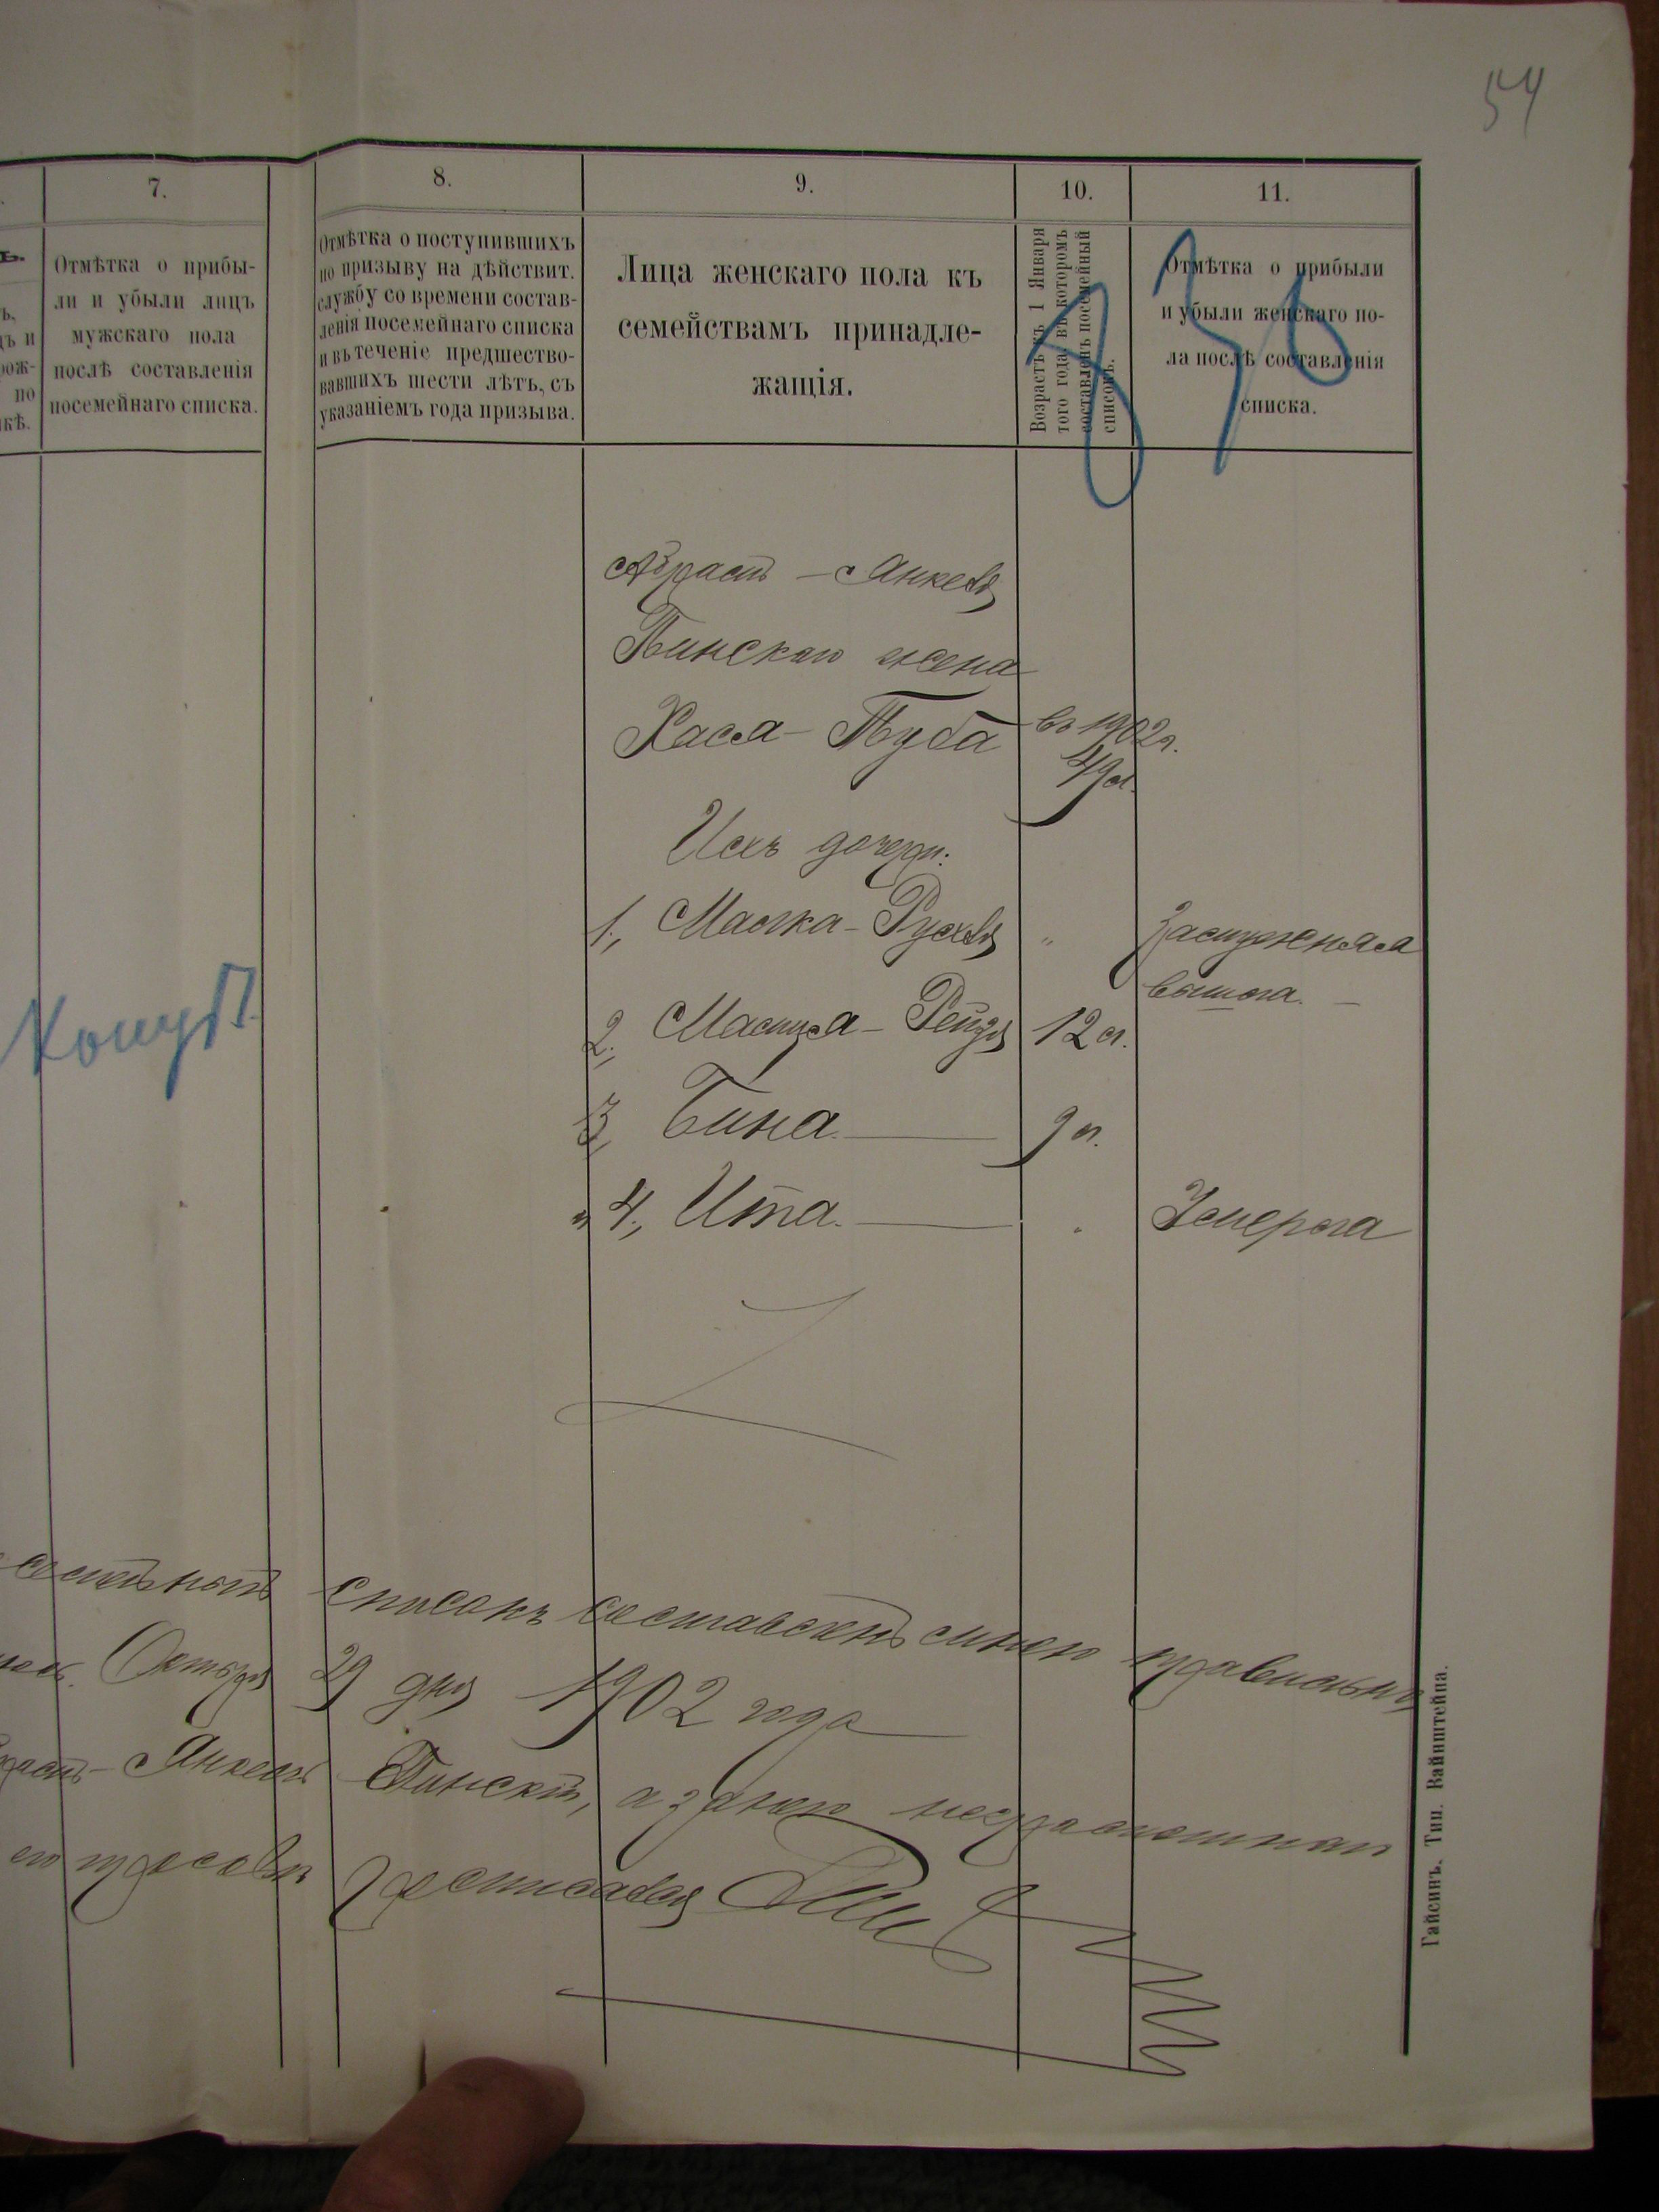 54
7.
8.
9.
10.
11.
Отмѣтка о прибы-
ли и убыли лицъ
мужскаго пола
послѣ составленія
посемейнаго списка.
Отмѣтка о поступившихъ
по призыву на дѣйствит.
службу со времени состав-
ленія посемейнаго списка
и въ теченіе предшество-
вавшихъ шести лѣтъ, съ
указаніемъ года призыва.
Лица женскаго пола къ
семействамъ принадле-
жащія.
Возрастъ къ 1 Января
того года, въ которомъ
составленъ посемейный
списокъ.
Отмѣтка о прибыли
и убыли женскаго по-
ла послѣ составленія
списка.
Янкеля
Пинскаго жена
Хася - Туба въ 1902 г.
49 л.
Ихъ дочери:
1., Малка - Рухля " Замужняя
вышла. -
2., - Рейзя 12 л.
3, Бина. 9 л.
" 4., Ита. " Умерла
списокъ составленъ мною правильно
Октября 29 дня 1902 года
Янкель Пинскій, а за него неграмотнаго
его просьбѣ росписался
Гайсинъ. Тип. Вайнштейна.